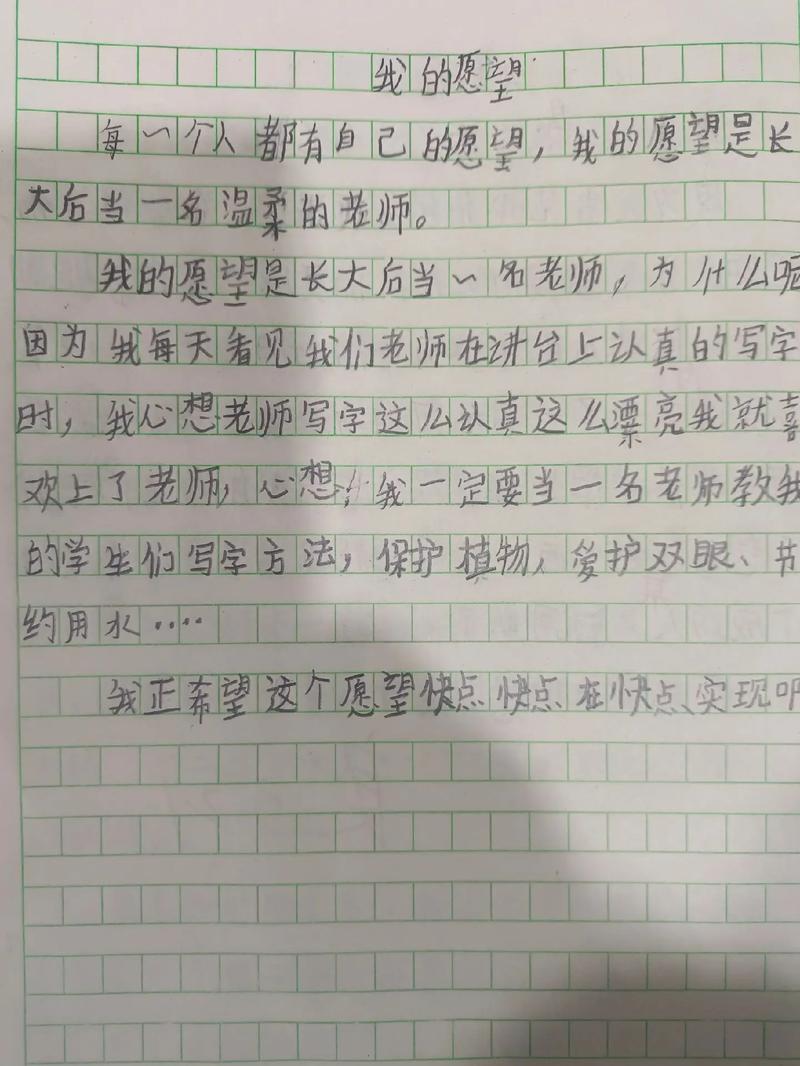 我的愿望
每一个人都有自己的愿望，我的愿望是长
大后当一名温柔的老师。
我的愿望是长大后当一名老师，为什么呢
因为我每天看见我们老师在讲台上认真的写字
时，我心想老师写字这么认真这么漂亮我就喜
欢上了老师，心想，我一定要当一名老师教我
的学生们写字方法，保护植物，爱护双眼、节
约用水····
我正希望这个愿望快点、快点、在快点、实现吧